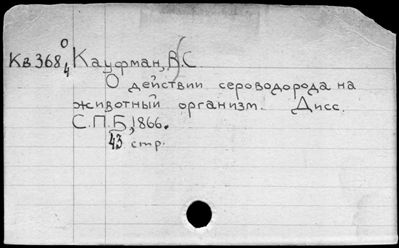 Кв 368 0/4 Кауфман, В.С.
О действии сероводорода на
животный организм. Дисс.
С.П.Б, 1866.
43 стр.